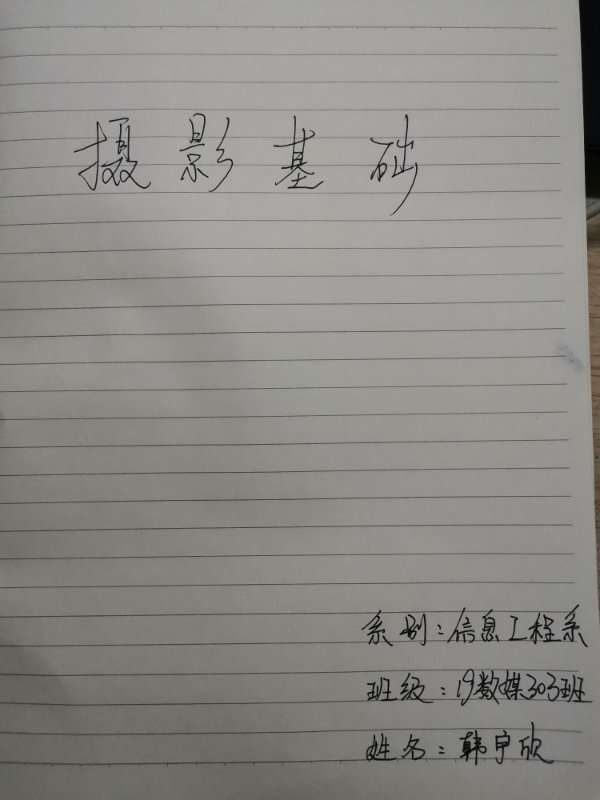 摄影基础
系别：信息工程系
班级：19数媒303班
姓名：韩宇欣